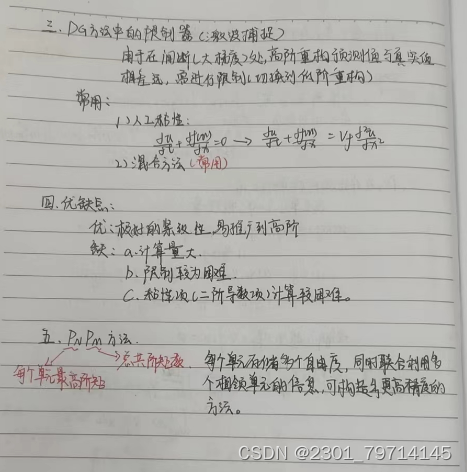 三、DG方法中的限制器(激波捕捉)
由于在间断(大梯度)处,高阶重构预测值与真实值
相差远,需进行限制(切换到低阶重构)
常用:
1)人工粘性:
du/dt + df(u)/dx = 0 → du/dt + df(u)/dx = V d²u/dx²
2)混合方法(常用)
四、优缺点:
优:极好的紧致性,易推广到高阶
缺:a.计算量大.
b.限制较为困难.
c.粘性项(二阶导数项)计算较困难。
五、PNPM方法.
每个单元最高阶矩
总共阶矩数
每个单元储存多个自由度,同时联合利用多
个相邻单元的信息,可构造出更高精度的
方法。
CSDN @2301_79714145